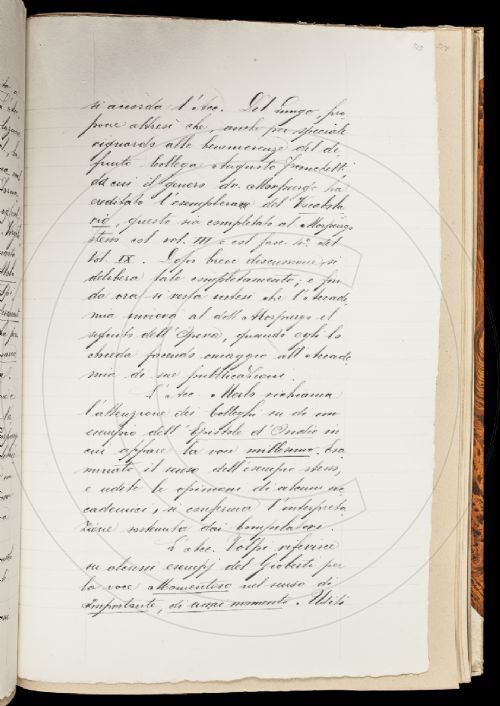 si accorda l'Acc. Del Lungo, pro
pone altresì che, anche per speciale
riguardo alle benemerenze del de
funto collega Augusto Franchetti,
da cui il genero dr. Morpurgo ha
ereditato l'esemplare del Vocabola
rio, questo sia completato al Morpurgo
stesso col vol. III e col fasc. 4º del
vol. IX. Dopo breve discussione, si
delibera tale completamento; e fin
da ora si resta intesi che l'Accade
mia invierà al dott. Morpurgo il
seguito dell'Opera, quando egli lo
chieda facendo omaggio all'Accade
mia di sue pubblicazioni.
L'Acc. Merlo richiama
l'attenzione dei colleghi su di un
esempio dell'Epistole d'Ovidio in
cui appare la voce millesimo. Esa
minato il senso dell'esempio stesso,
e udite le opinioni di alcuni Ac
cademici, si conferma l'interpreta
zione sostenuta dai Compilatori.
L'Acc. Volpi riferisce
su alcuni esempj del Gioberti per
la voce Momentoso nel senso di
Importante, di assai momento. Uditi